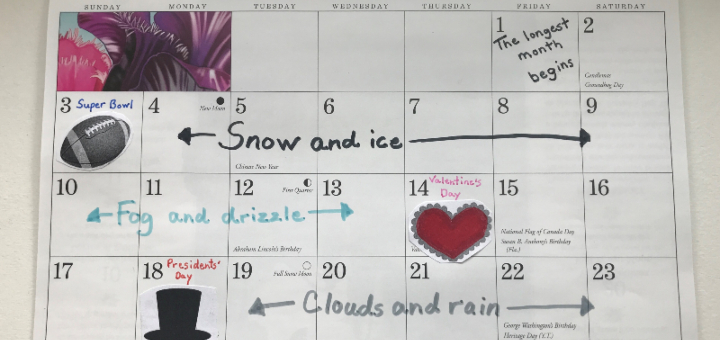 SUNDAY MONDAY TUESDAY WEDNESDAY THURSDAY FRIDAY SATURDAY
1 2
The longest
month
begins
Candlemas
Groundhog Day
3 Super Bowl 4 New Moon 5 6 7 8 9
Snow and ice
Chinese New Year
10 11 12 First Quarter 13 14 Valentine's Day 15 16
Fog and drizzle
Abraham Lincoln's Birthday
National Flag of Canada Day
Susan B. Anthony's Birthday
(Fla.)
17 18 Presidents' Day 19 Full Snow Moon 20 21 22 23
Clouds and rain
George Washington's Birthday
Heritage Day (Y.T.)